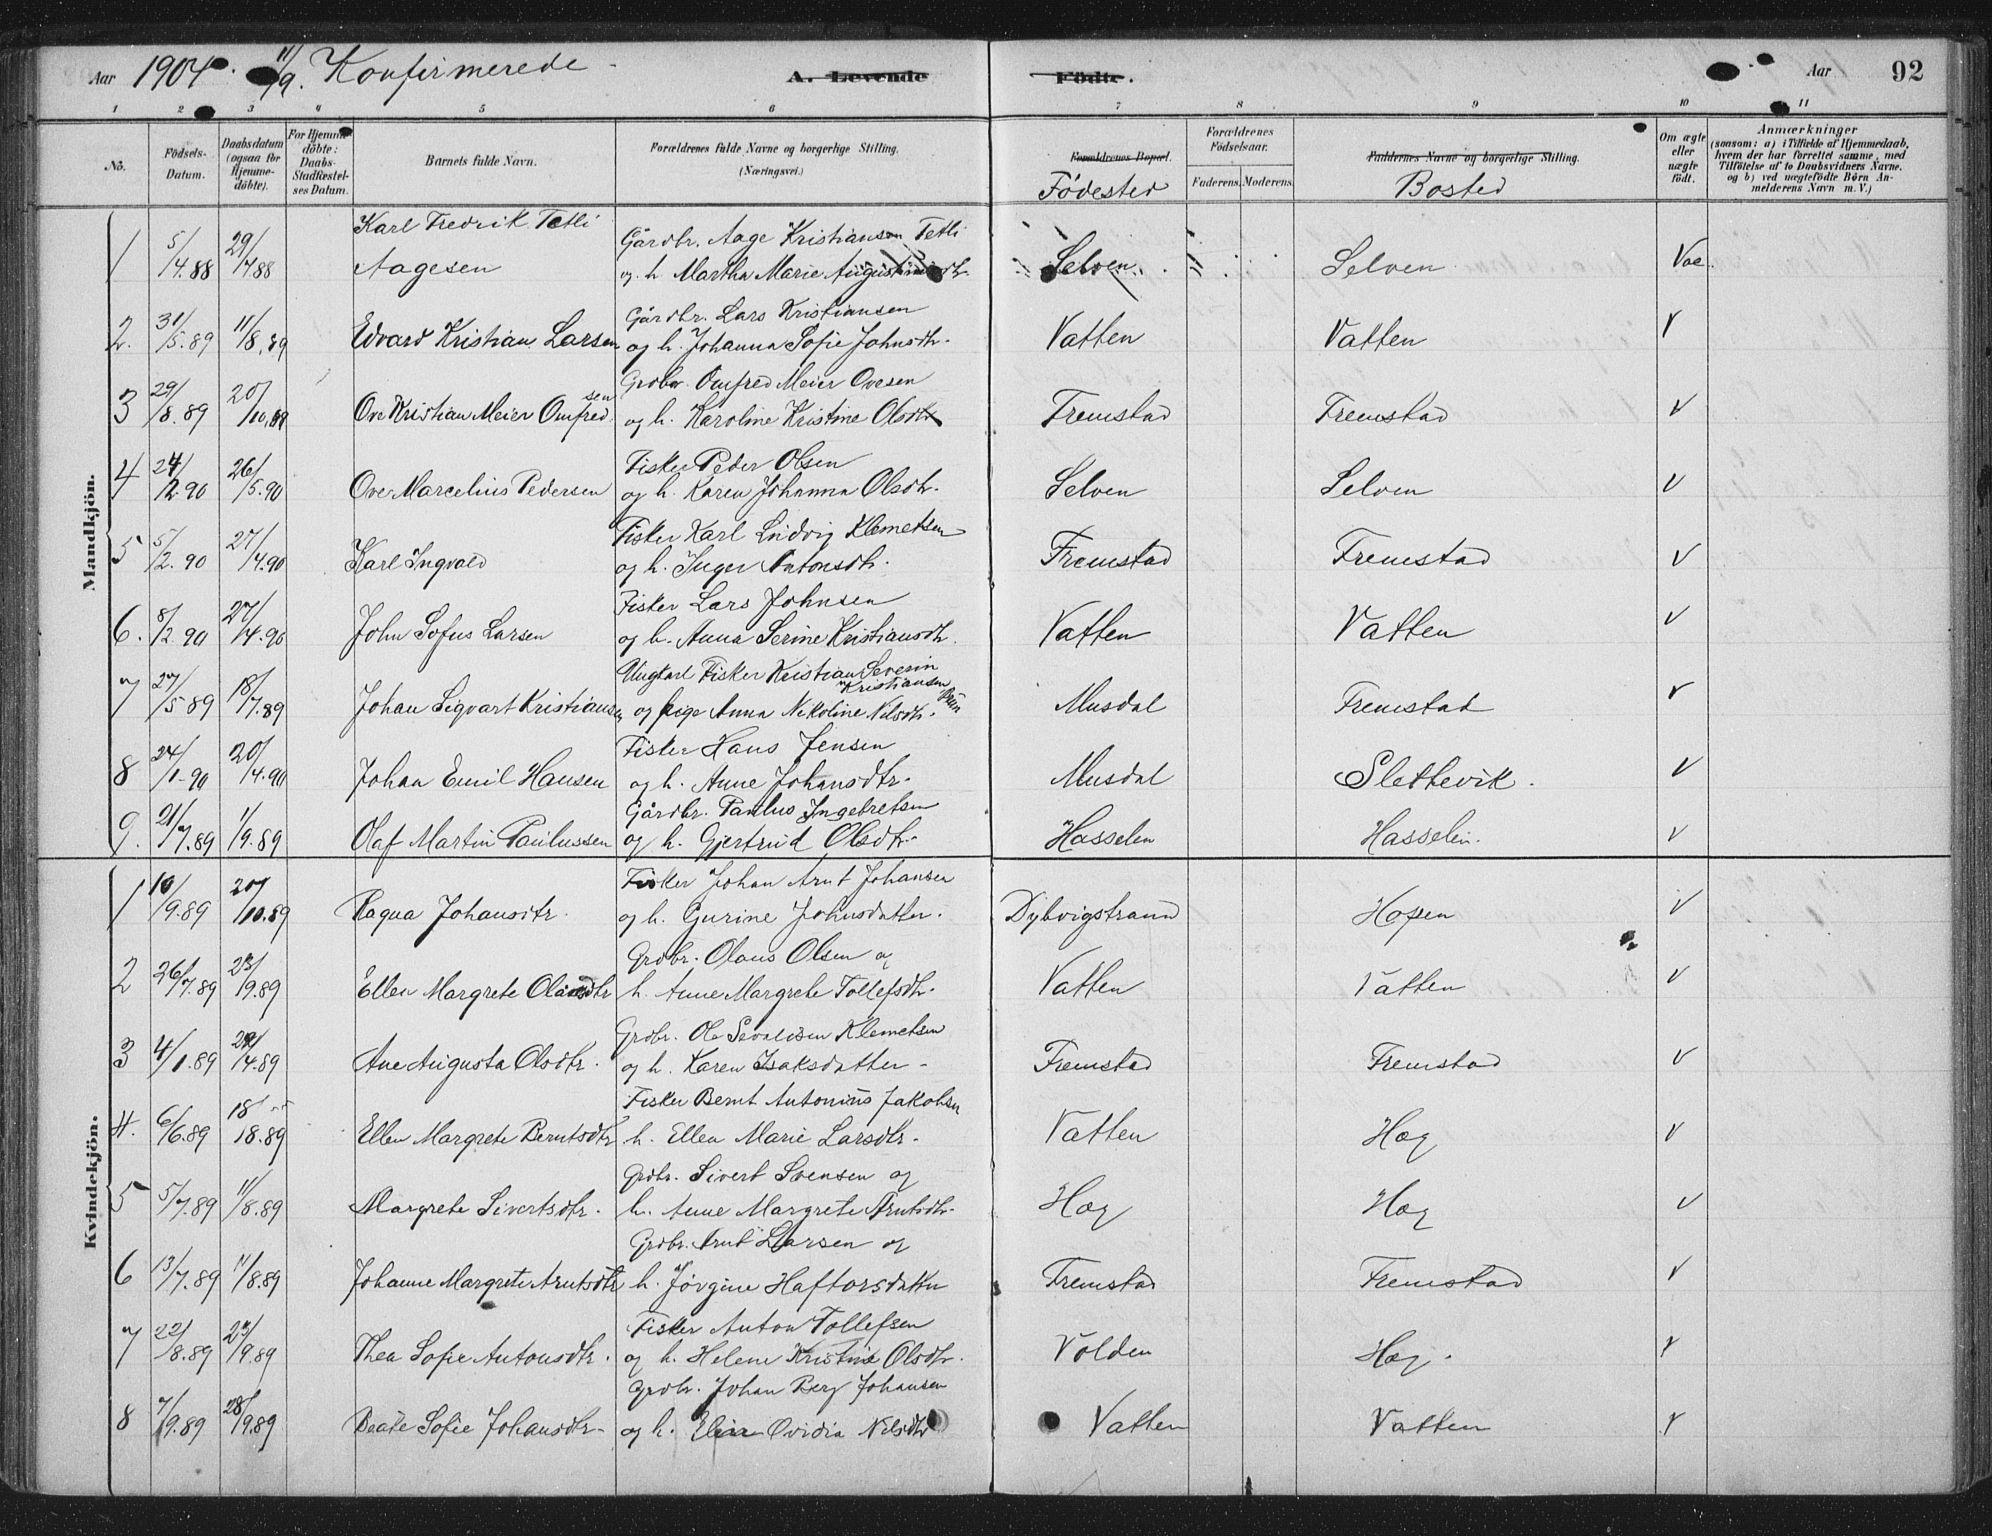 Aar 1904. 11/9. Konfirmerede
A. Levende Födte.
Aar 92
1 2 3 4 5 6 7 8 9 10 11
No.
Födsels-Datum.
Daabsdatum (ogsaa for Hjemme-döbte).
For Hjemme-döbte: Daabs-Stadfæstelses Datum.
Barnets fulde Navn.
Forældrenes fulde Navne og borgerlige Stilling. (Næringsvei.)
Forældrenes Bopæl.
Födested
Forældrenes Födselsaar.
Faderens. Moderens.
Faddernes Navne og borgerlige Stilling.
Bosted
Om ægte eller uægte födt.
Anmærkninger
(saasom: a) i Tilfælde af Hjemmedaab, hvem der har forrettet samme, med Tilföielse af to Daabsvidners Navne. og b) ved uægtefödte Börn Anmelderens Navn m. V.)
Mandkjön.
Karl Fredrik Tetli Gårdbr. Aage Kristiansen Tetli
1 5/4.88 29/4.88 Aagesen og h. Martha Marie Augustinusdtr. Selven Selven Vac.
Gårdbr. Lars Kristiansen
2. 31/5.89 11/8.89 Edvard Kristian Larsen og h. Johanna Sofie Johnsdtr. Vatten Vatten
Grdbr. Omfred Meier Ovesen
3 29/8.89 20/10.89 Ove Kristian Meier Omfredsen og h. Karoline Kristine Olsdtr Fremstad Fremstad
Fisker Peder Olsen
4 24/2.90 26/5.90 Ove Marcelius Pedersen og h. Karen Johanna Olsdtr. Selven Selven
Fisker Karl Ludvig Klemetsen
5 5/2.90 27/4.90 Karl Ingvald og h. Inger Antonsdtr. Fremstad Fremstad
Fisker Lars Johnsen
6. 8/2.90 27/4.90 John Sofus Larsen og h. Anna Serine Kristiansdtr. Vatten Vatten
Ungkarl Fisker Kristian Severin Kristiansen
7 27/5 89 18/7.89 Johan Sigvart Kristiansen og pige Anna Nikoline Nilsdtr. Musdal Fremstad
Fisker Hans Jensen
8 24/1-90 20/4.90 Johan Emil Hansen og h. Anne Johansdtr. Musdal Slettevik.
Gårdbr. Paulus Ingebretsen
9. 21/7.89 1/9.89 Olaf Martin Paulussen og h. Gjertrud Olsdtr. Hasselen Hasselen.
Kvindekjön.
Fisker Johan Arnt Johansen
1 10/9.89 20/10.89 Ragna Johansdtr. og h. Gurine Johnsdatter. Dybvigstrand Hopen
Grdbr. Olaus Olsen og
2 26/7.89 23/9.89 Ellen Margrete Olausdtr h. Anne Margrete Tollefsdtr. Vatten Vatten
Grdbr. Ole Sevaldsen Klemetsen
3 4/1.89 /4.89 Ane Augusta Olsdtr. og h. Karen Isaksdatter - Fremstad Fremstad
Fisker Bernt Antonius Jakobsen
4. 6/6.89 18/8.89 Ellen Margrete Berntsdtr h. Ellen Marie Larsdtr. Vatten Hæg
Grdbr. Sivert Svensen og
5 5/7.89 11/8.89 Margrete Sivertsdtr. h. Anne Margrete Arntsdtr. Hæg Hæg
Grdbr. Arnt Larsen og
6 13/7.89 11/8.89 Johanne Margrete Arntsdtr h. Jørgine Haftorsdatter Fremstad Fremstad
Fisker Anton Tollefsen
7 22/8.89 23/9.89 Thea Sofie Antonsdtr. og h. Helene Kristine Olsdtr. Volden Hæg.
Grdbr. Johan Berg Johansen
8 7/9.89 28/9.89 Beate Sofie Johansdtr. og h. Elen Ovidia Nilsdtr Vatten Vatten